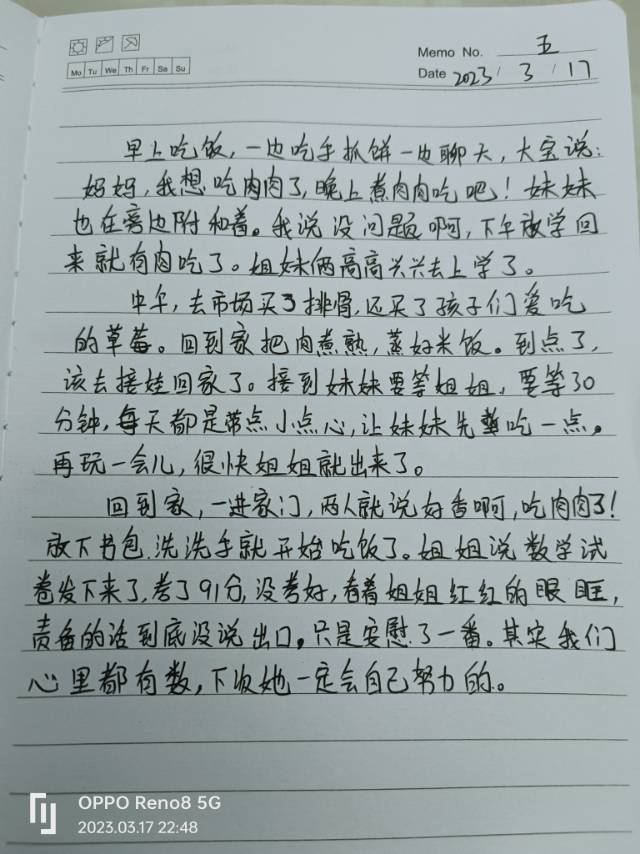 Memo No. 五
Mo Tu We Th Fr Sa Su
Date 2023 / 3 / 17
早上吃饭，一边吃手抓饼一边聊天，大宝说：
妈妈，我想吃肉肉了，晚上煮肉肉吃吧！妹妹
也在旁边附和着。我说没问题啊，下午放学回
来就有肉吃了。姐妹俩高高兴兴去上学了。
中午，去市场买了排骨，还买了孩子们爱吃
的草莓。回到家把肉煮熟，蒸好米饭。到点了，
该去接娃回家了。接到妹妹要等姐姐，要等30
分钟，每天都是带点小点心，让妹妹先垫吃一点。
再玩一会儿，很快姐姐就出来了。
回到家，一进家门，两人就说好香啊，吃肉肉了！
放下书包，洗洗手就开始吃饭了。姐姐说数学试
卷发下来了，考了91分，没考好，看着姐姐红红的眼眶，
责备的话到底没说出口，只是安慰了一番。其实我们
心里都有数，下次她一定会自己努力的。
OPPO Reno8 5G
2023.03.17 22:48